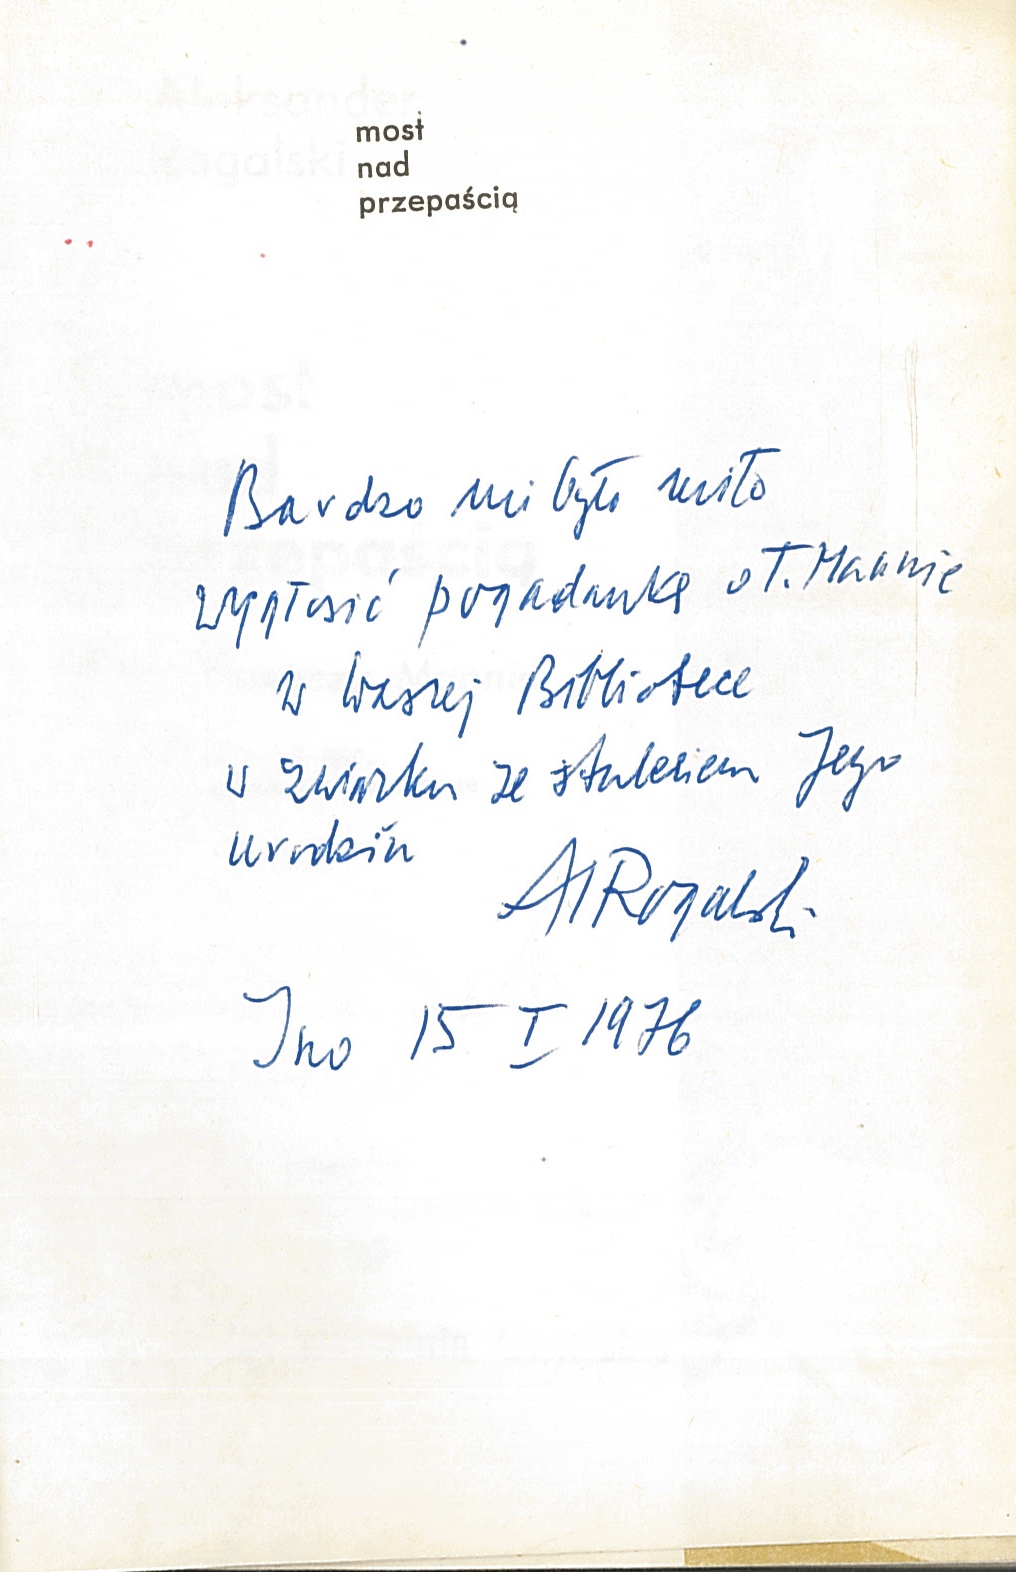 most
nad
przepaścią
Bardzo mi było miło
wygłosić pogadankę o T. Mannie
w Waszej Bibliotece
w związku ze stuleciem Jego
urodzin
Al Rogalski
Ino 15 I 1976